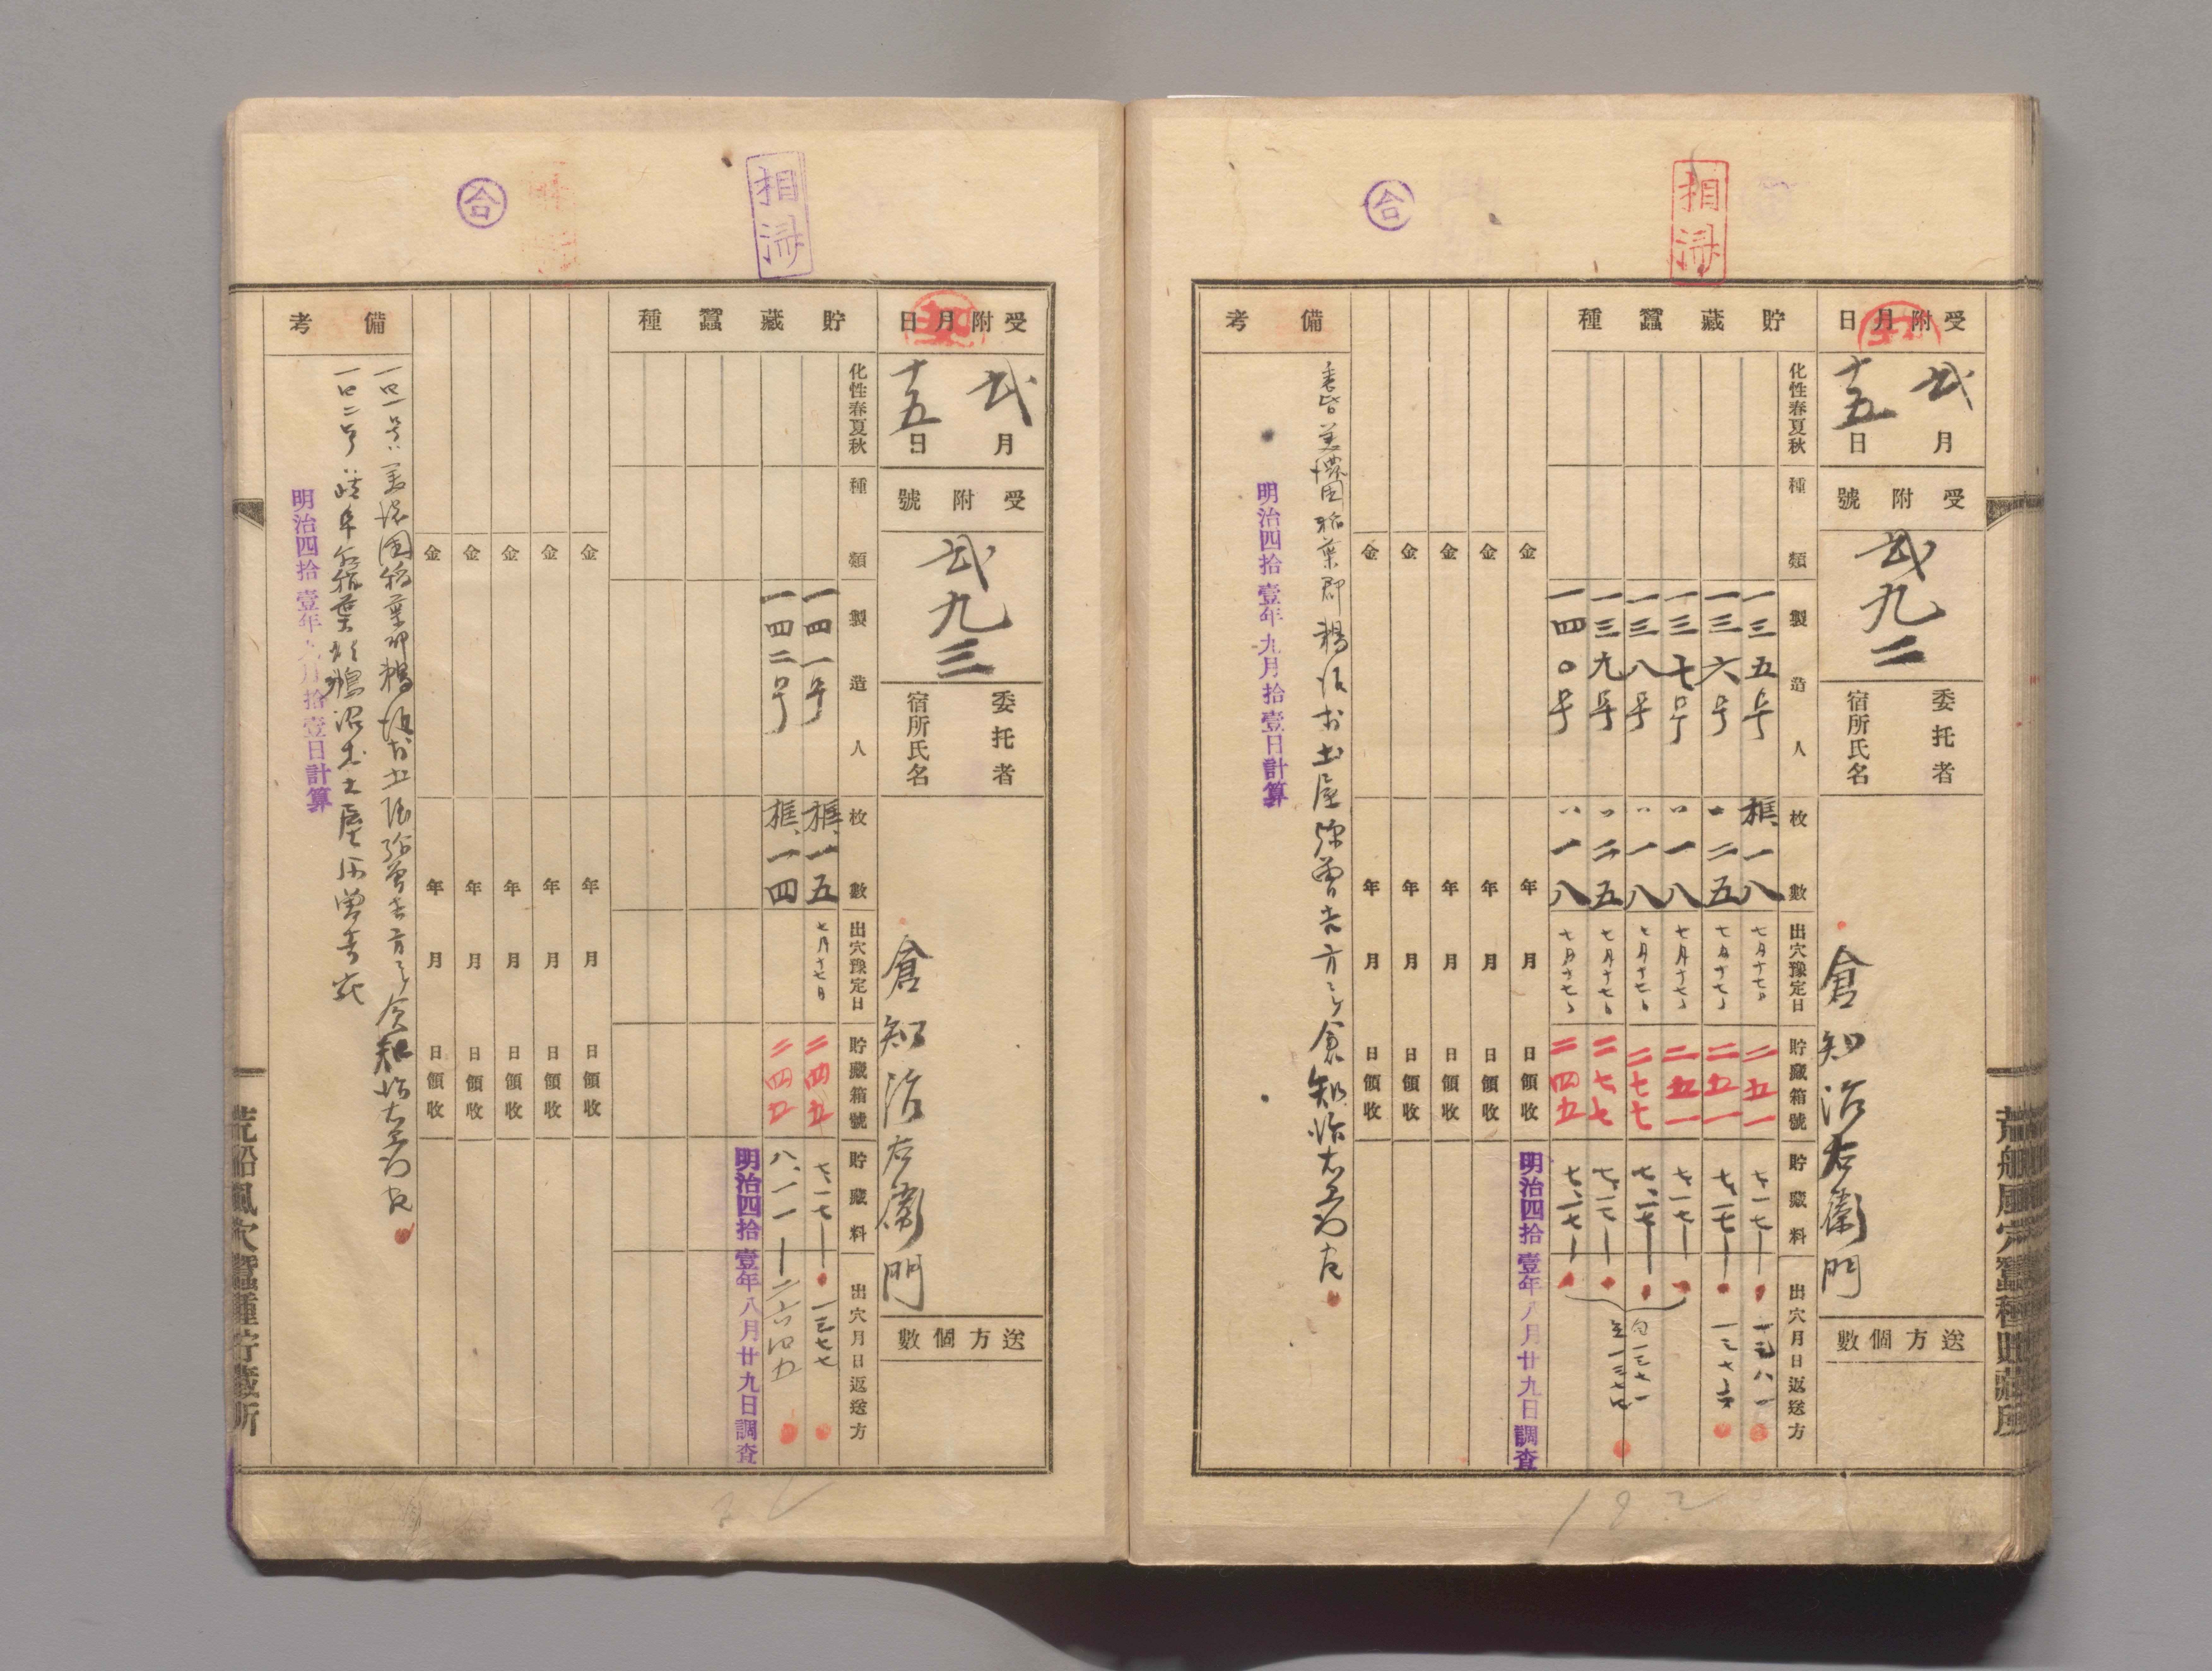 相済
合
受附月日
弐月
十五日
受附號
弐九二
委托者
宿所氏名
倉知治右衛門
送方個數
貯藏蠶種
化性春夏秋
種類
製造人
枚數
出穴豫定日
貯藏箱號
貯藏料
出穴月日返送方
一三五号 框、一八 七月十七日 二五一 七、一七
一三六号 〃 二五 七月十七〃 二五一 七、一七
一三七号 〃 一八 七月十七〃 二五一 七、一七
一三八号 〃 一八 七月十七〃 二七七 七、一七
一三九号 〃 二五 七月十七〃 二七七 七、一七
一四〇号 〃 一八 七月十七〃 二四五 七、一七
明治四拾壹年八月廿九日調査
金 年 月 日領收
金 年 月 日領收
金 年 月 日領收
金 年 月 日領收
金 年 月 日領收
備考
美濃国稲葉郡鵜沼村土屋弥曽吉方ニテ倉知治右衛門
明治四拾壹年九月拾壹日計算
荒船風穴蠶種貯藏所
192
相済
合
受附月日
弐月
十五日
受附號
弐九三
委托者
宿所氏名
倉知治右衛門
送方個數
貯藏蠶種
化性春夏秋
種類
製造人
枚數
出穴豫定日
貯藏箱號
貯藏料
出穴月日返送方
一四一号 框、一五 七月十七日 二四五 七、一七 一三七七
一四二号 框、一四 二四五 八、一一 二六四五
明治四拾壹年八月廿九日調査
金 年 月 日領收
金 年 月 日領收
金 年 月 日領收
金 年 月 日領收
金 年 月 日領收
備考
一四一号ハ美濃国稲葉郡鵜沼村土屋弥曽吉方ニテ倉知治右衛門
一四二号ハ岐阜縣稲葉郡鵜沼村土屋弥曽吉
明治四拾壹年九月拾壹日計算
荒船風穴蠶種貯藏所